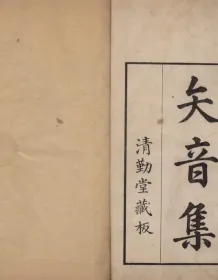 矢音集
清勤堂藏板